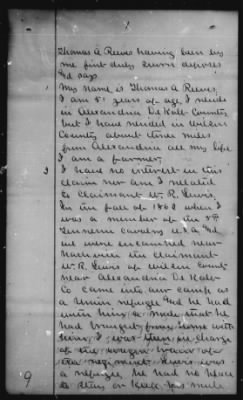 1
Thomas A Reeves having been by
me first duly sworn deposes
and says
My name is Thomas A Reeves,
I am 51 years of age, I reside
in Alexandria De Kalb County
but I have resided in Wilson
County about three miles
from Alexandria all my life
I am a farmer.
I have no interest in this
claim nor am I related
to claimant W. R. Lewis.
In the fall of 1862 when I
was a member of the 5th
Tennessee Cavalry U.S.A and
we were encamped near
Nashville the claimant
W. R. Lewis of Wilson County
near Alexandria De Kalb
Co came into our camp as
a Union refugee and he had
with him a mule that he
had brought from home with
him, I was then in charge
of the wagon train of
the regiment. Lewis was
a refugee, he had no place
to stay or keep his mule
9